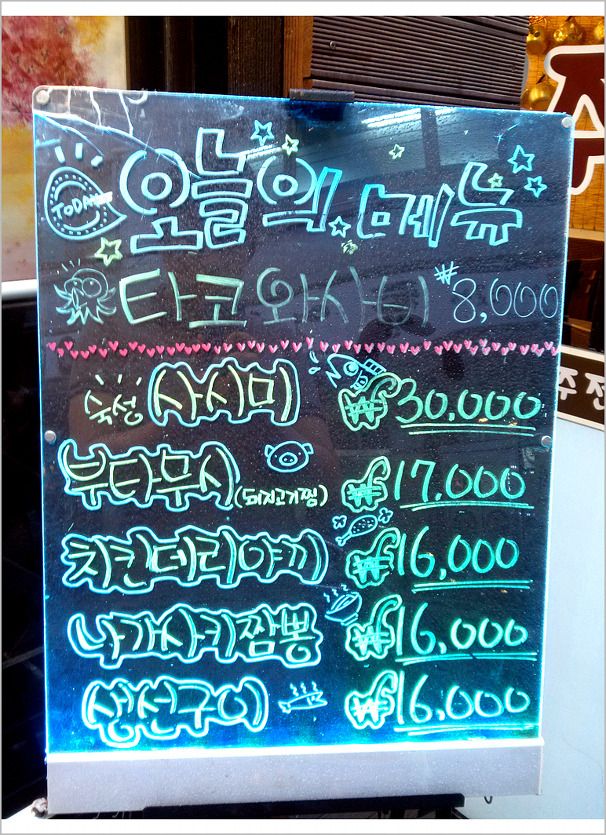 TODAY 오늘의 메뉴
타코와사비 ₩8,000
숙성 사시미 ₩30,000
부타무시(돼지고기찜) ₩17,000
치킨데리야끼 ₩16,000
나가사키짬뽕 ₩16,000
생선구이 ₩16,000
주전